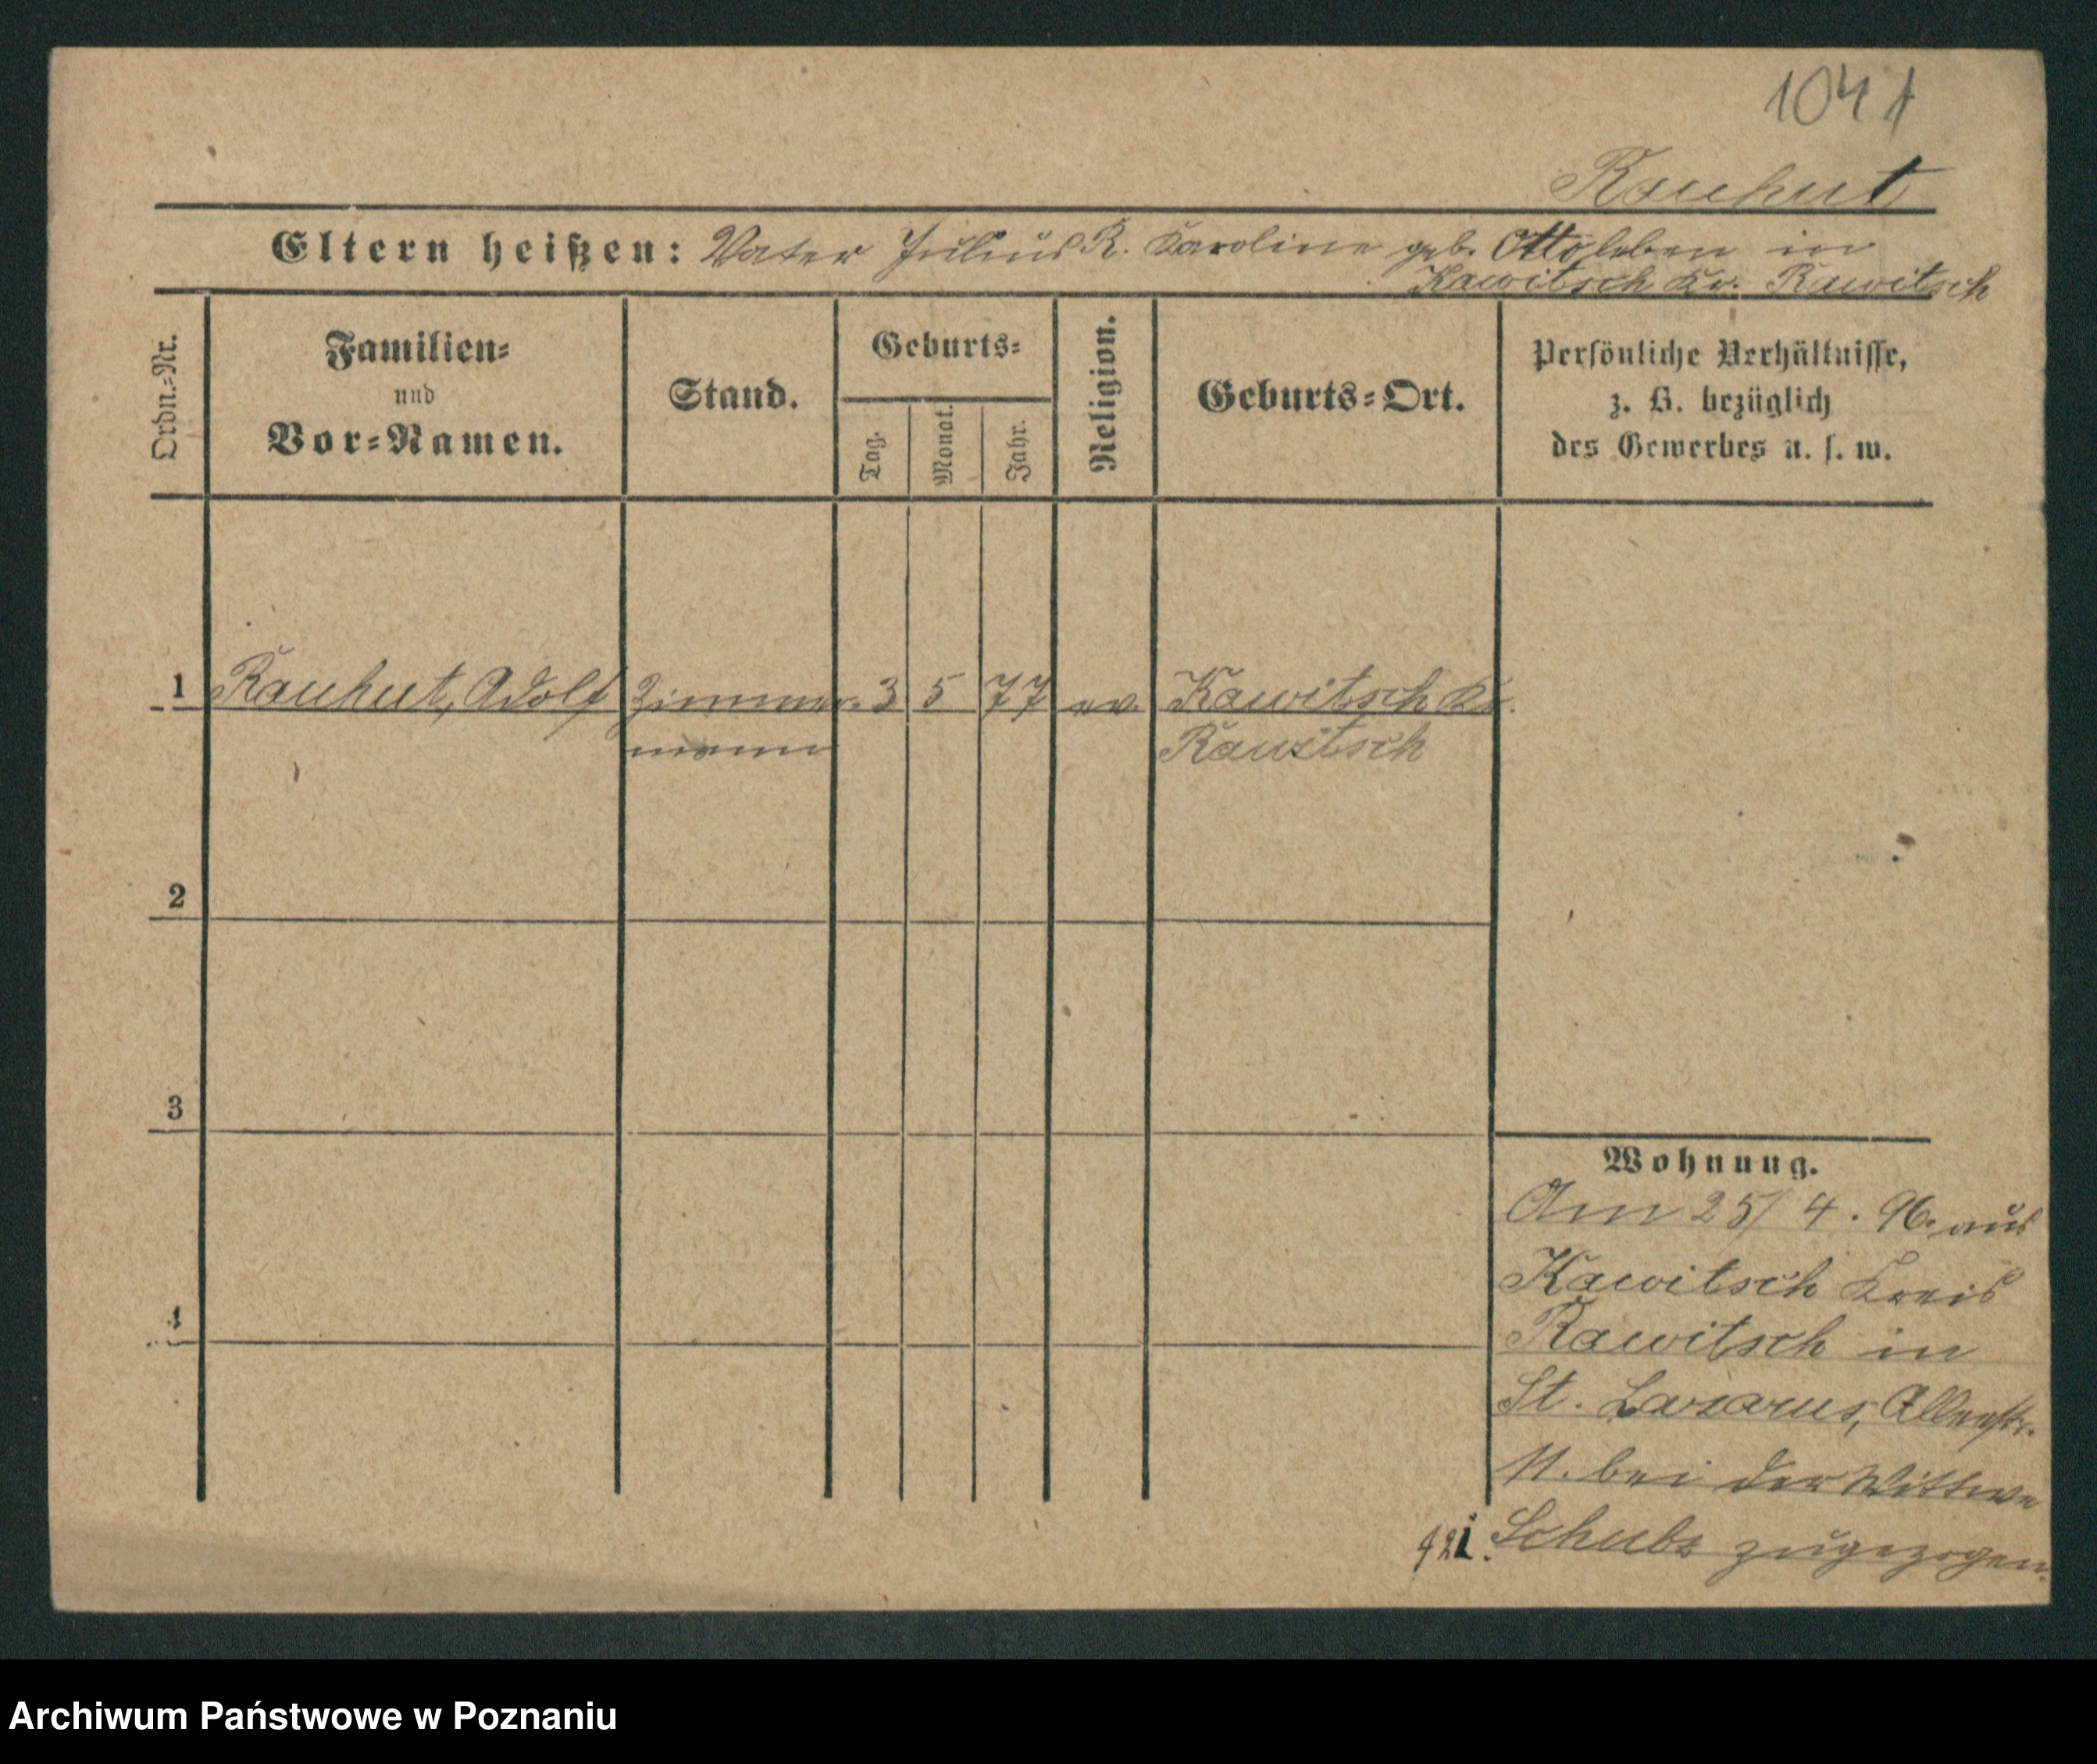 1041
Rauhut
Eltern heißen: Vater Julius R. Karoline geb. Ottoleben in
Kawitsch Kr. Rawitsch
Ordn.=Nr.
Familien=
und
Vor=Namen.
Stand.
Geburts=
Tag.
Monat.
Jahr.
Religion.
Geburts=Ort.
Persönliche Verhältnisse,
z. B. bezüglich
des Gewerbes u. s. w.
1 Rauhut, Adolf Zimmer= 3 5 77 ev. Kawitsch Kr.
mann Rawitsch
2
3
4
Wohnung.
Am 25/4. 96. aus
Kawitsch Kreis
Rawitsch in
St. Lazarus,
11. bei der Wittwe
Schubz zugezogen.